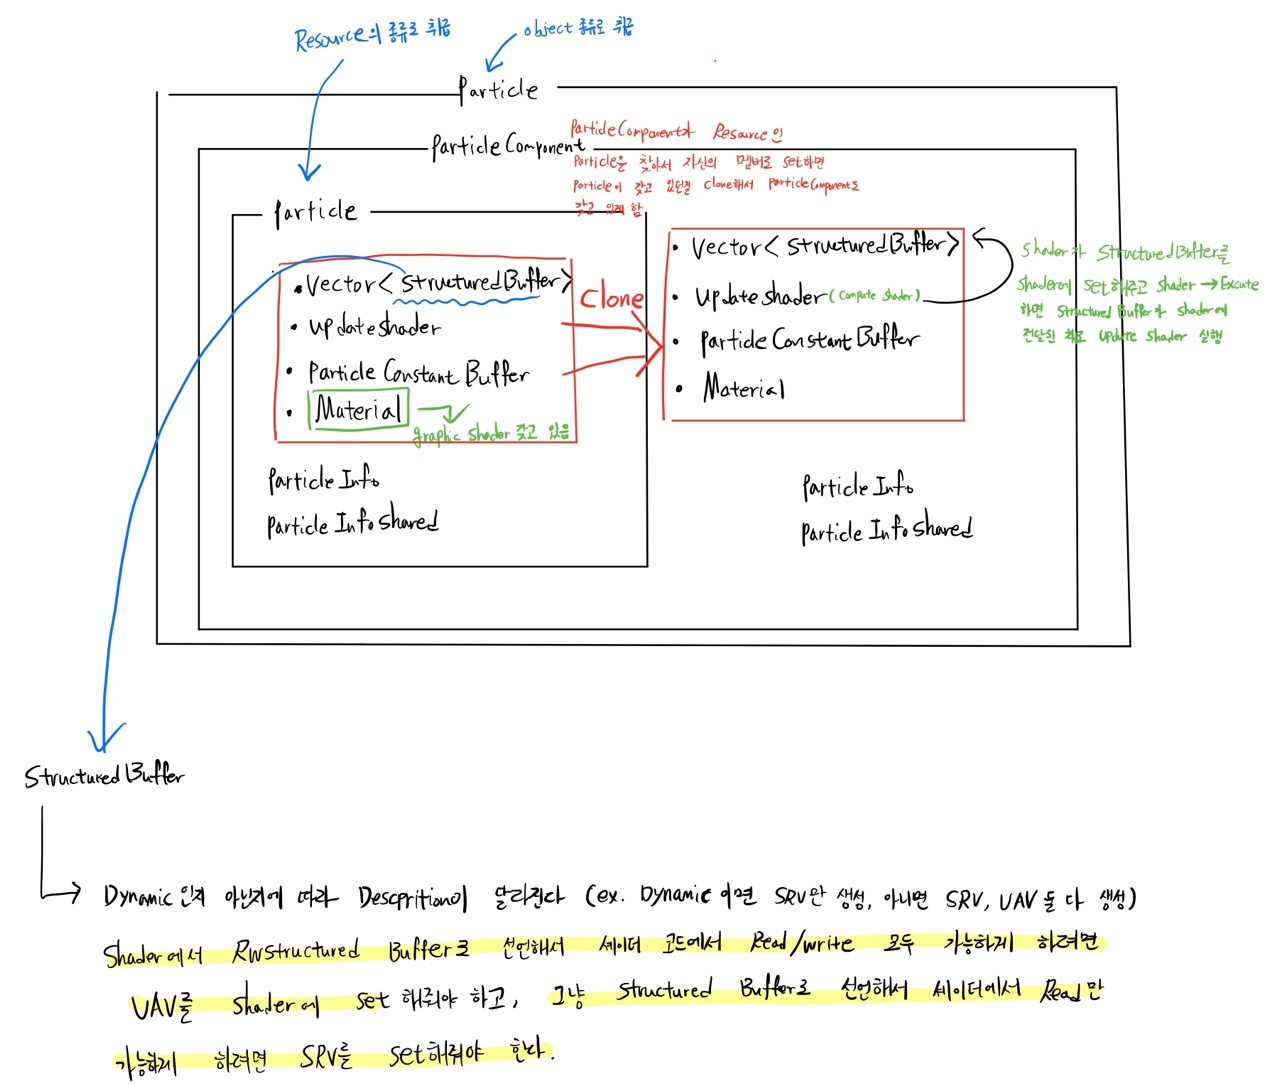 Resource의 종류로 취급
object 종류로 취급
Particle
Particle Component
ParticleComponent가 Resource인
Particle을 찾아서 자신의 멤버로 set하면
Particle이 갖고 있던걸 Clone해서 ParticleComponent도
갖고 있게 함
Particle
• Vector< StructuredBuffer>
• updateshader
• Particle Constant Buffer
• Material
graphic shader 갖고 있음
Particle Info
Particle Info Shared
Clone
• Vector< StructuredBuffer>
• updateshader (Compute shader)
• particle Constant Buffer
• Material
Particle Info
Particle Info Shared
Shader가 StructuredBuffer를
Shader에 Set해주고 Shader → Excute
하면 Structured Buffer가 shader에
전달된 채로 update shader 실행
Structured Buffer
Dynamic 인지 아닌지에 따라 Descprition이 달라진다 (ex. Dynamic 이면 SRV만 생성, 아니면 SRV, UAV 둘 다 생성)
Shader에서 RWStructured Buffer로 선언해서 셰이더 코드에서 Read/write 모두 가능하게 하려면
UAV를 shader에 set 해줘야 하고, 그냥 Structured Buffer로 선언해서 셰이더에서 Read만
가능하게 하려면 SRV를 set해줘야 한다.